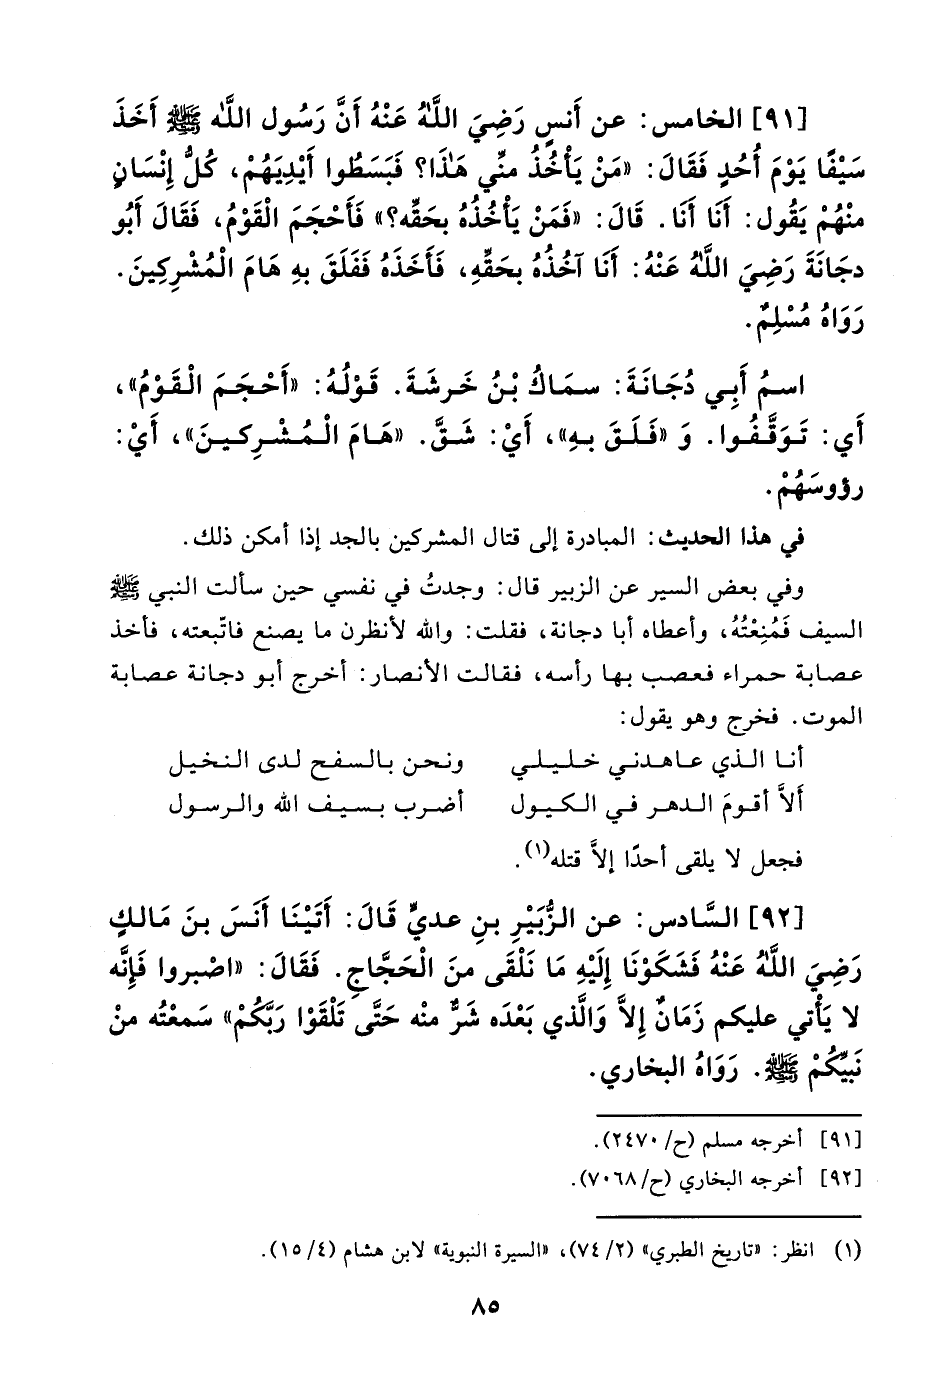 [٩١] الخامس: عن أَنسٍ رَضِيَ اللَّهُ عَنْهُ أَنَّ رَسُول اللَّه ﷺ أَخَذَ
سَيْفًا يَوْمَ أُحُدٍ فَقَالَ: «مَنْ يَأْخُذُ منِّي هَذَا؟ فَبَسَطُوا أَيْدِيَهُمْ، كُلُّ إِنْسَانٍ
منْهُمْ يَقُول: أَنَا أَنَا. قَالَ: «فَمَنْ يَأْخُذُهُ بحَقِّه؟» فَأَحْجَمَ الْقَوْمُ، فَقَالَ أَبُو
دجَانَةَ رَضِيَ اللَّهُ عَنْهُ: أَنَا آخُذُهُ بحَقِّهِ، فَأَخَذَهُ فَفَلَقَ بِهِ هَامَ الْمُشْرِكِينَ.
رَوَاهُ مُسْلِمٌ.
اسمُ أَبِي دُجَانَةَ: سمَاكُ بْنُ خَرشَةَ. قَوْلُهُ: «أَحْجَمَ الْقَوْمُ»،
أَي: تَوَقَّفُوا. وَ «فَلَقَ بهِ»، أَيْ: شَقَّ. «هَامَ الْمُشْرِكينَ»، أَيْ:
رؤوسَهُمْ.
في هذا الحديث: المبادرة إلى قتال المشركين بالجد إذا أمكن ذلك.
وفي بعض السير عن الزبير قال: وجدتُ في نفسي حين سألت النبي ﷺ
السيف فَمُنِعْتُهُ، وأعطاه أبا دجانة، فقلت: والله لأنظرن ما يصنع فاتّبعته، فأخذ
عصابة حمراء فعصب بها رأسه، فقالت الأنصار: أخرج أبو دجانة عصابة
الموت. فخرج وهو يقول:
أنا الذي عاهدني خليلي ونحن بالسفح لدى النخيل
ألاَّ أقومَ الدهر في الكيول أضرب بسيف الله والرسول
فجعل لا يلقى أحدًا إلاَّ قتله(١).
[٩٢] السَّادس: عن الزُّبَيْرِ بنِ عديٍّ قَالَ: أَتَيْنَا أَنَسَ بنَ مَالكٍ
رَضِيَ اللَّهُ عَنْهُ فَشَكَوْنَا إِلَيْهِ مَا نَلْقَى منَ الْحَجَّاجِ. فَقَالَ: «اصْبروا فَإِنَّه
لا يَأْتي عليكم زَمَانٌ إلاَّ وَالَّذي بَعْدَه شَرٌّ منْه حَتَّى تَلْقَوْا رَبَّكُمْ» سَمعْتُه منْ
نَبِيِّكُمْ ﷺ. رَوَاهُ البخاري.
[٩١] أخرجه مسلم (ح/٢٤٧٠).
[٩٢] أخرجه البخاري (ح/٧٠٦٨).
(١) انظر: «تاريخ الطبري» (٢/ ٧٤)، «السيرة النبوية» لابن هشام (٤/ ١٥).
٨٥